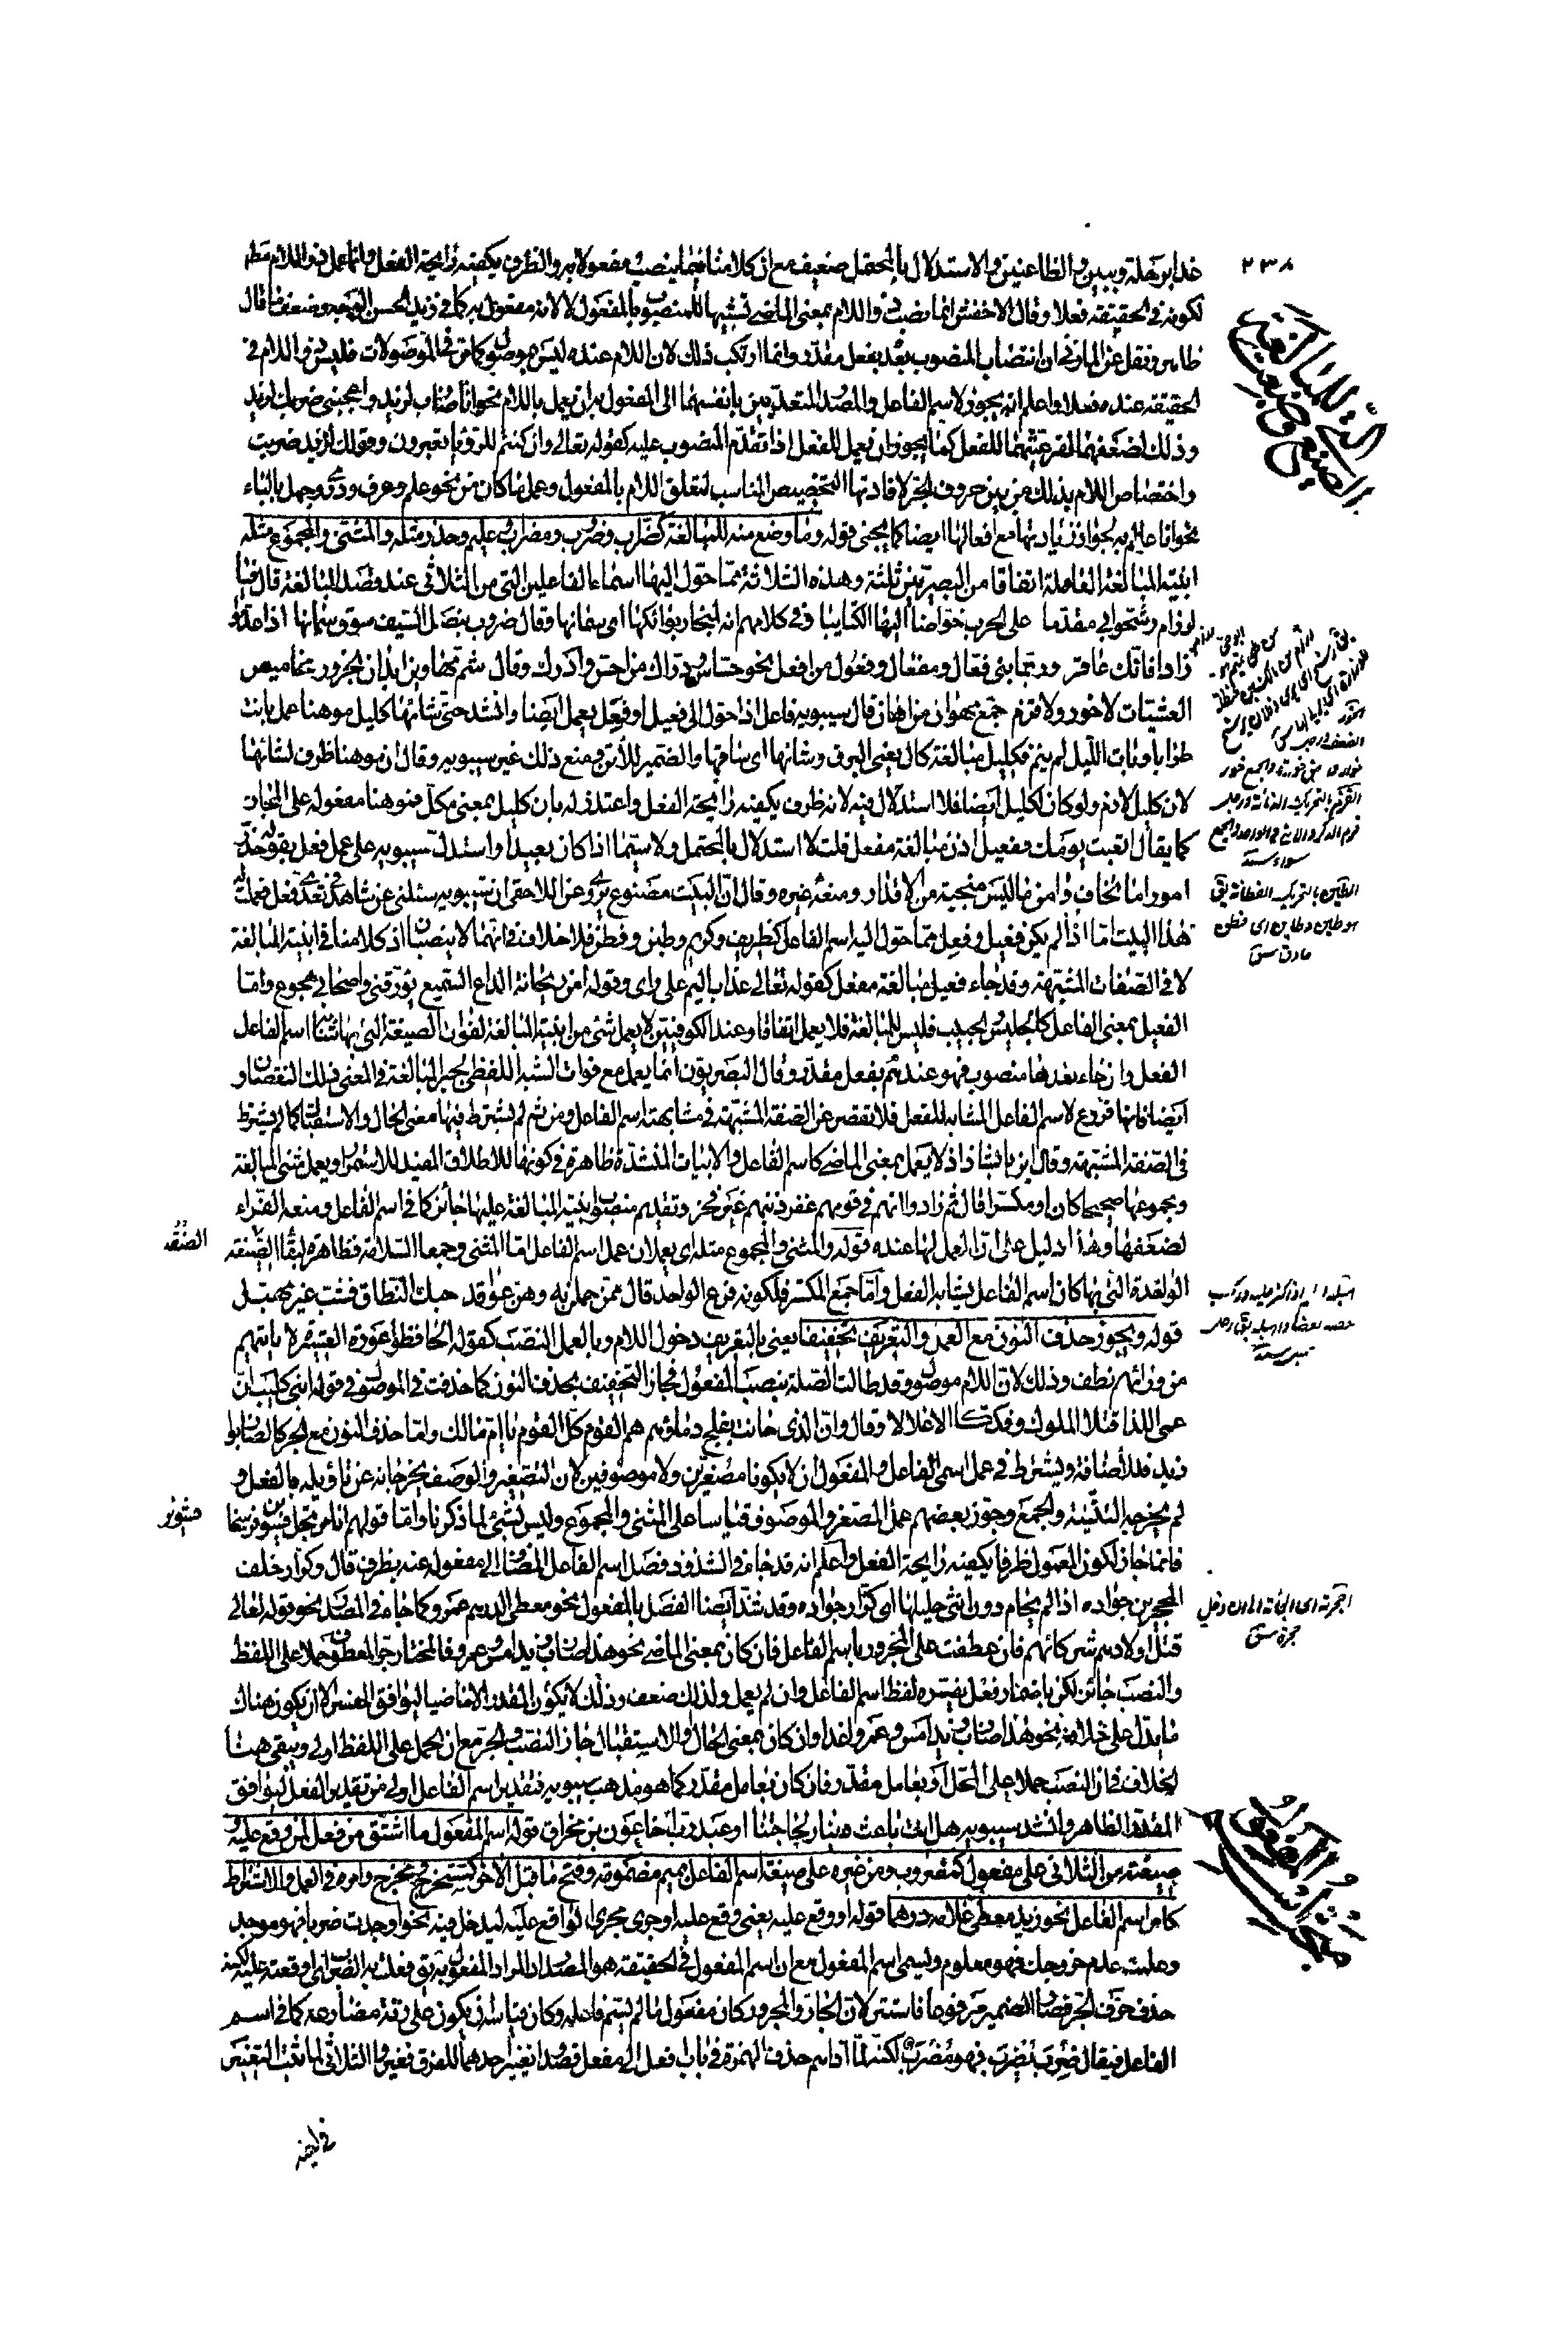 ٢٣٨
لكونه في الحقيقة فعلا وقال الاخفش انما نصب ذو اللام بمعنى الماضي تشبيها للمنصوب بالمفعول لا لانه مفعول به كما في زيد الحسن الوجه وضعف ما قال
ظاهر ونقل عن المازني ان انتصاب المنصوب بعد بفعل مقدر وانما ارتكب ذلك لان اللام عنده ليس بموصول كما مر في الموصولات فليس ذو اللام في
الحقيقة عنده فعلا واعلم انه يجوز لاسم الفاعل والمصدر المتعديين بانفسهما الى المفعول به ان يعمل باللام نحو انا ضارب لزيد واعجبني ضربك لزيد
وذلك لضعفهما لفرعيتهما للفعل كما يجوز ان يعمل للفعل اذا تقدم المنصوب عليه كقوله تعالى وان كنتم للرؤيا تعبرون وقولك لزيد ضربت
واختصاص اللام بذلك من بين حروف الجر لافادتها التخصيص المناسب لتعلق اللام بالمفعول وعمل ما كان من نحو علم وعرف ودرى وجهل بالباء
نحو انا عالم به لجواز زيادتها مع افعالها ايضا كما يجيء قوله وما وضع منه للمبالغة كضراب وضروب ومضراب عليم وحذر مثله والمثنى والمجموع مثله
ابنية المبالغة العاملة اتفاقا من البصريين ثلثة وهذه الثلاثة مما حول اليها اسماء الفاعلين التي من الثلاثي عند قصد المبالغة قال فيا
لرزام رشحوا بي مقدما على الحرب خواضا اليها الكتايبا وفي كلامهم انه لمنحار بوائكها اى سمانها وقال ضروب بنصل السيف سوق سمانها اذا عدموا
زادا فانك عاقر وربما بنى فعال ومفعال وفعول من افعل نحو حساس ودراك من احس وادرك وقال شم مهاوين ابدان الجزور مخاميص
العشيات لا خور ولا قزم جمع مهوان من اهان قال سيبويه فاعل اذا حول الى فعيل او فعل يعمل ايضا وانشد حتى شآها كليل موهنا عمل باتت
طرابا وبات الليل لم ينم فكليل مبالغة كال يعني البرق وشآها اى ساقها والضمير للأتن ومنع ذلك غير سيبويه وقال ان موهنا ظرف لشآها
لان كليل لازم ولو كان لكليل ايضا فلا استدلال فيه لانه ظرف يكفيه رايحة الفعل واعتذر له بان كليل بمعنى مكل فموهنا مفعوله على المجاز
كما يقال اتعبت يومك ففعيل اذن مبالغة مفعل قلت لا استدلال بالمحتمل ولا سيما اذا كان بعيدا واستدل سيبويه على عمل فعل بقوله حذر
امورا ما تخاف وامن ما ليس منجيه من الاقدار ومنعه غيره وقال ان البيت مصنوع يروى عن اللاحقى ان سيبويه سئلني عن شاهد في تعدى فعل فعملت له
هذا البيت اما اذا لم يكن فعيل وفعل مما حول اليه اسم الفاعل كظريف وكريم وطبن وفطن فلا خلاف في انهما لا ينصبان اذ كلامنا في ابنية المبالغة
لا في الصفات المشبهة وقد جاء فعيل مبالغة مفعل كقوله تعالى عذاب اليم على راى وقوله امن ريحانة الداع السميع يؤرقني واصحابي هجوع واما
الفعيل بمعنى الفاعل كالجليس الحبيب فليس للمبالغة فلا يعمل اتفاقا وعند الكوفيين لا يعمل شئ من ابنية المبالغة لفوات الصيغة التي بها شابه اسم الفاعل
الفعل وان جاء بعدها منصوب فهو عندهم بفعل مقدر وقال البصريون انما يعمل مع فوات الشبه اللفظي لجبر المبالغة في المعنى ذلك النقصان و
ايضا فانها فروع لاسم الفاعل المشابه للفعل فلا تقصر عن الصفة المشبهة في مشابهة اسم الفاعل ومن ثم لم يشترط فيها معنى الحال والاستقبال كما لم يشترط
في الصفة المشبهة وقال ابن بابشاذ لا يعمل بمعنى الماضي كاسم الفاعل والابيات المنشدة ظاهرة في كونها للاطلاق المفيد للاستمرار ويعمل مثنى المبالغة
ومجموعها صحيحا كان او مكسرا قال ثم زادوا انهم في قومهم غفر ذنبهم غير فخر وتقديم منصوب ابنية المبالغة عليها جائز كما في اسم الفاعل ومنعه الفراء
لضعفها وهذا دليل على ان العمل لها عنده قوله والمثنى والمجموع مثله اى يعملان عمل اسم الفاعل اما المثنى وجمعا السلامة فظاهرة لبقاء الصيغة
الواحدة التي بها كان اسم الفاعل يشابه الفعل واما جمع المكسر فلكونه فرع الواحد قال ممن حملن به وهن عواقد حبك النطاق فشب غير مهبل
قوله ويجوز حذف النون مع العمل والتعريف تخفيفا يعني بالتعريف دخول اللام وبالعمل النصب كقوله الحافظوا عورة العشيرة لا ياتيهم
من ورائهم نطف وذلك لان اللام موصول وقد طالت الصلة بنصب المفعول فجاز التخفيف بحذف النون كما حذفت في الموصول في قوله ابني كليب ان
عمى اللذا قتلا الملوك وفككا الاغلالا وقال وان الذي حانت بفلج دماؤهم هم القوم كل القوم يا ام مالك واما حذف النون مع الجر كالضاربو
زيد فللاضافة ويشترط في عمل اسمى الفاعل والمفعول ان لا يكونا مصغرين ولا موصوفين لان التصغير والوصف يخرجانه عن تاويله بالفعل و
لم يخرجه التثنية والجمع وجوز بعضهم عمل المصغر والموصوف قياسا على المثنى والمجموع وليس بشئ لما ذكرنا واما قولهم انا مرتحل فسوير فرسخا
فانما جاز لكون المعمول ظرفا يكفيه رايحة الفعل واعلم انه قد جاء في الشذوذ فصل اسم الفاعل المضاف الى مفعوله عنه بظرف قال وكرار خلف
المجحرين جواده اذا لم يحام دون انثى حليلها اى كرار جواده وقد شذ ايضا الفصل بالمفعول نحو معطى الدرهم عمرو كما جاء في المصدر نحو قوله تعالى
قتل اولادهم شركائهم فان عطفت على المجرور باسم الفاعل فان كان بمعنى الماضي نحو هذا ضارب زيد امس وعمرو فالمختار جر المعطوف حملا على اللفظ
والنصب جائز لكن باضمار فعل يفسره لفظ اسم الفاعل وان لم يعمل ولذلك ضعف وذلك لا يكون المقدر الا ماضيا ليوافق المفسر الا ان يكون هناك
ما يدل على خلافه نحو هذا ضارب زيد امس وعمرو غدا وان كان بمعنى الحال والاستقبال جاز النصب والجر مع ان الحمل على اللفظ اولى ويبقى هنا
الخلاف في ان النصب حملا على المحل او بعامل مقدر فان كان بعامل مقدر كما هو مذهب سيبويه فتقدير اسم الفاعل اولى من تقدير الفعل ليوافق
المقدر الظاهر وانشد سيبويه هل انت باعث دينار لحاجتنا او عبد رب اخا عون بن مخراق قوله اسم المفعول ما اشتق من فعل لمن وقع عليه و
صيغته من الثلاثي على مفعول كمضروب ومن غيره على صيغة اسم الفاعل بميم مضمومة وفتح ما قبل الاخر كمستخرج ومخرج وامره في العمل والاشتراط
كامر اسم الفاعل نحو زيد معطى غلامه درهما قوله او وقع عليه يعني وقع عليه او جرى مجرى الواقع عليه ليدخل فيه نحو اوجدت ضربا فهو موجد
وعلمت عدم خروجك فهو معلوم ويسمى اسم المفعول مع ان اسم المفعول في الحقيقة هو المصدر اذ المراد المفعول به يق فعلت به الضرب اى اوقعته عليه لكنه
حذف حرف الجر فصار الضمير مرفوعا فاستتر لان الجار والمجرور كان مفعول ما لم يسم فاعله وكان قياسه ان يكون على زنة مضارعه كما في اسم
الفاعل فيقال ضرب يضرب فهو مضرب لكنه لما اداهم حذف الهمزة في باب افعل الى مفعل قصدوا تغيير احدهما للفرق فغيروا الثلاثي لما ثبت التغيير